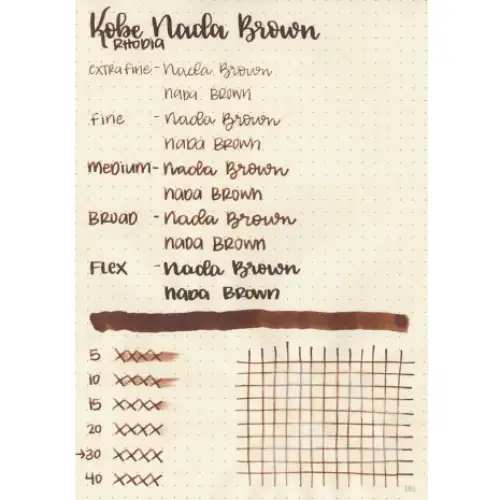 Kobe Nada Brown
RHODIA
EXTRA FINE - Nada Brown
NADA BROWN
FINE - Nada Brown
NADA BROWN
MEDIUM - Nada Brown
NADA BROWN
BROAD - Nada Brown
NADA BROWN
FLEX - Nada Brown
NADA BROWN
5 XXXX
10 XXXX
15 XXXX
20 XXXX
→30 XXXX
40 XXXX